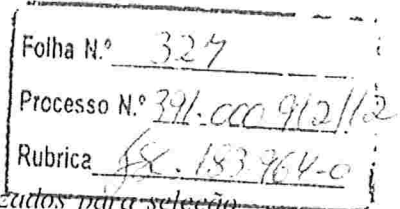 Folha N.º 327
Processo N.º 391.000.912/12
Rubrica 183.964-0
para seleção